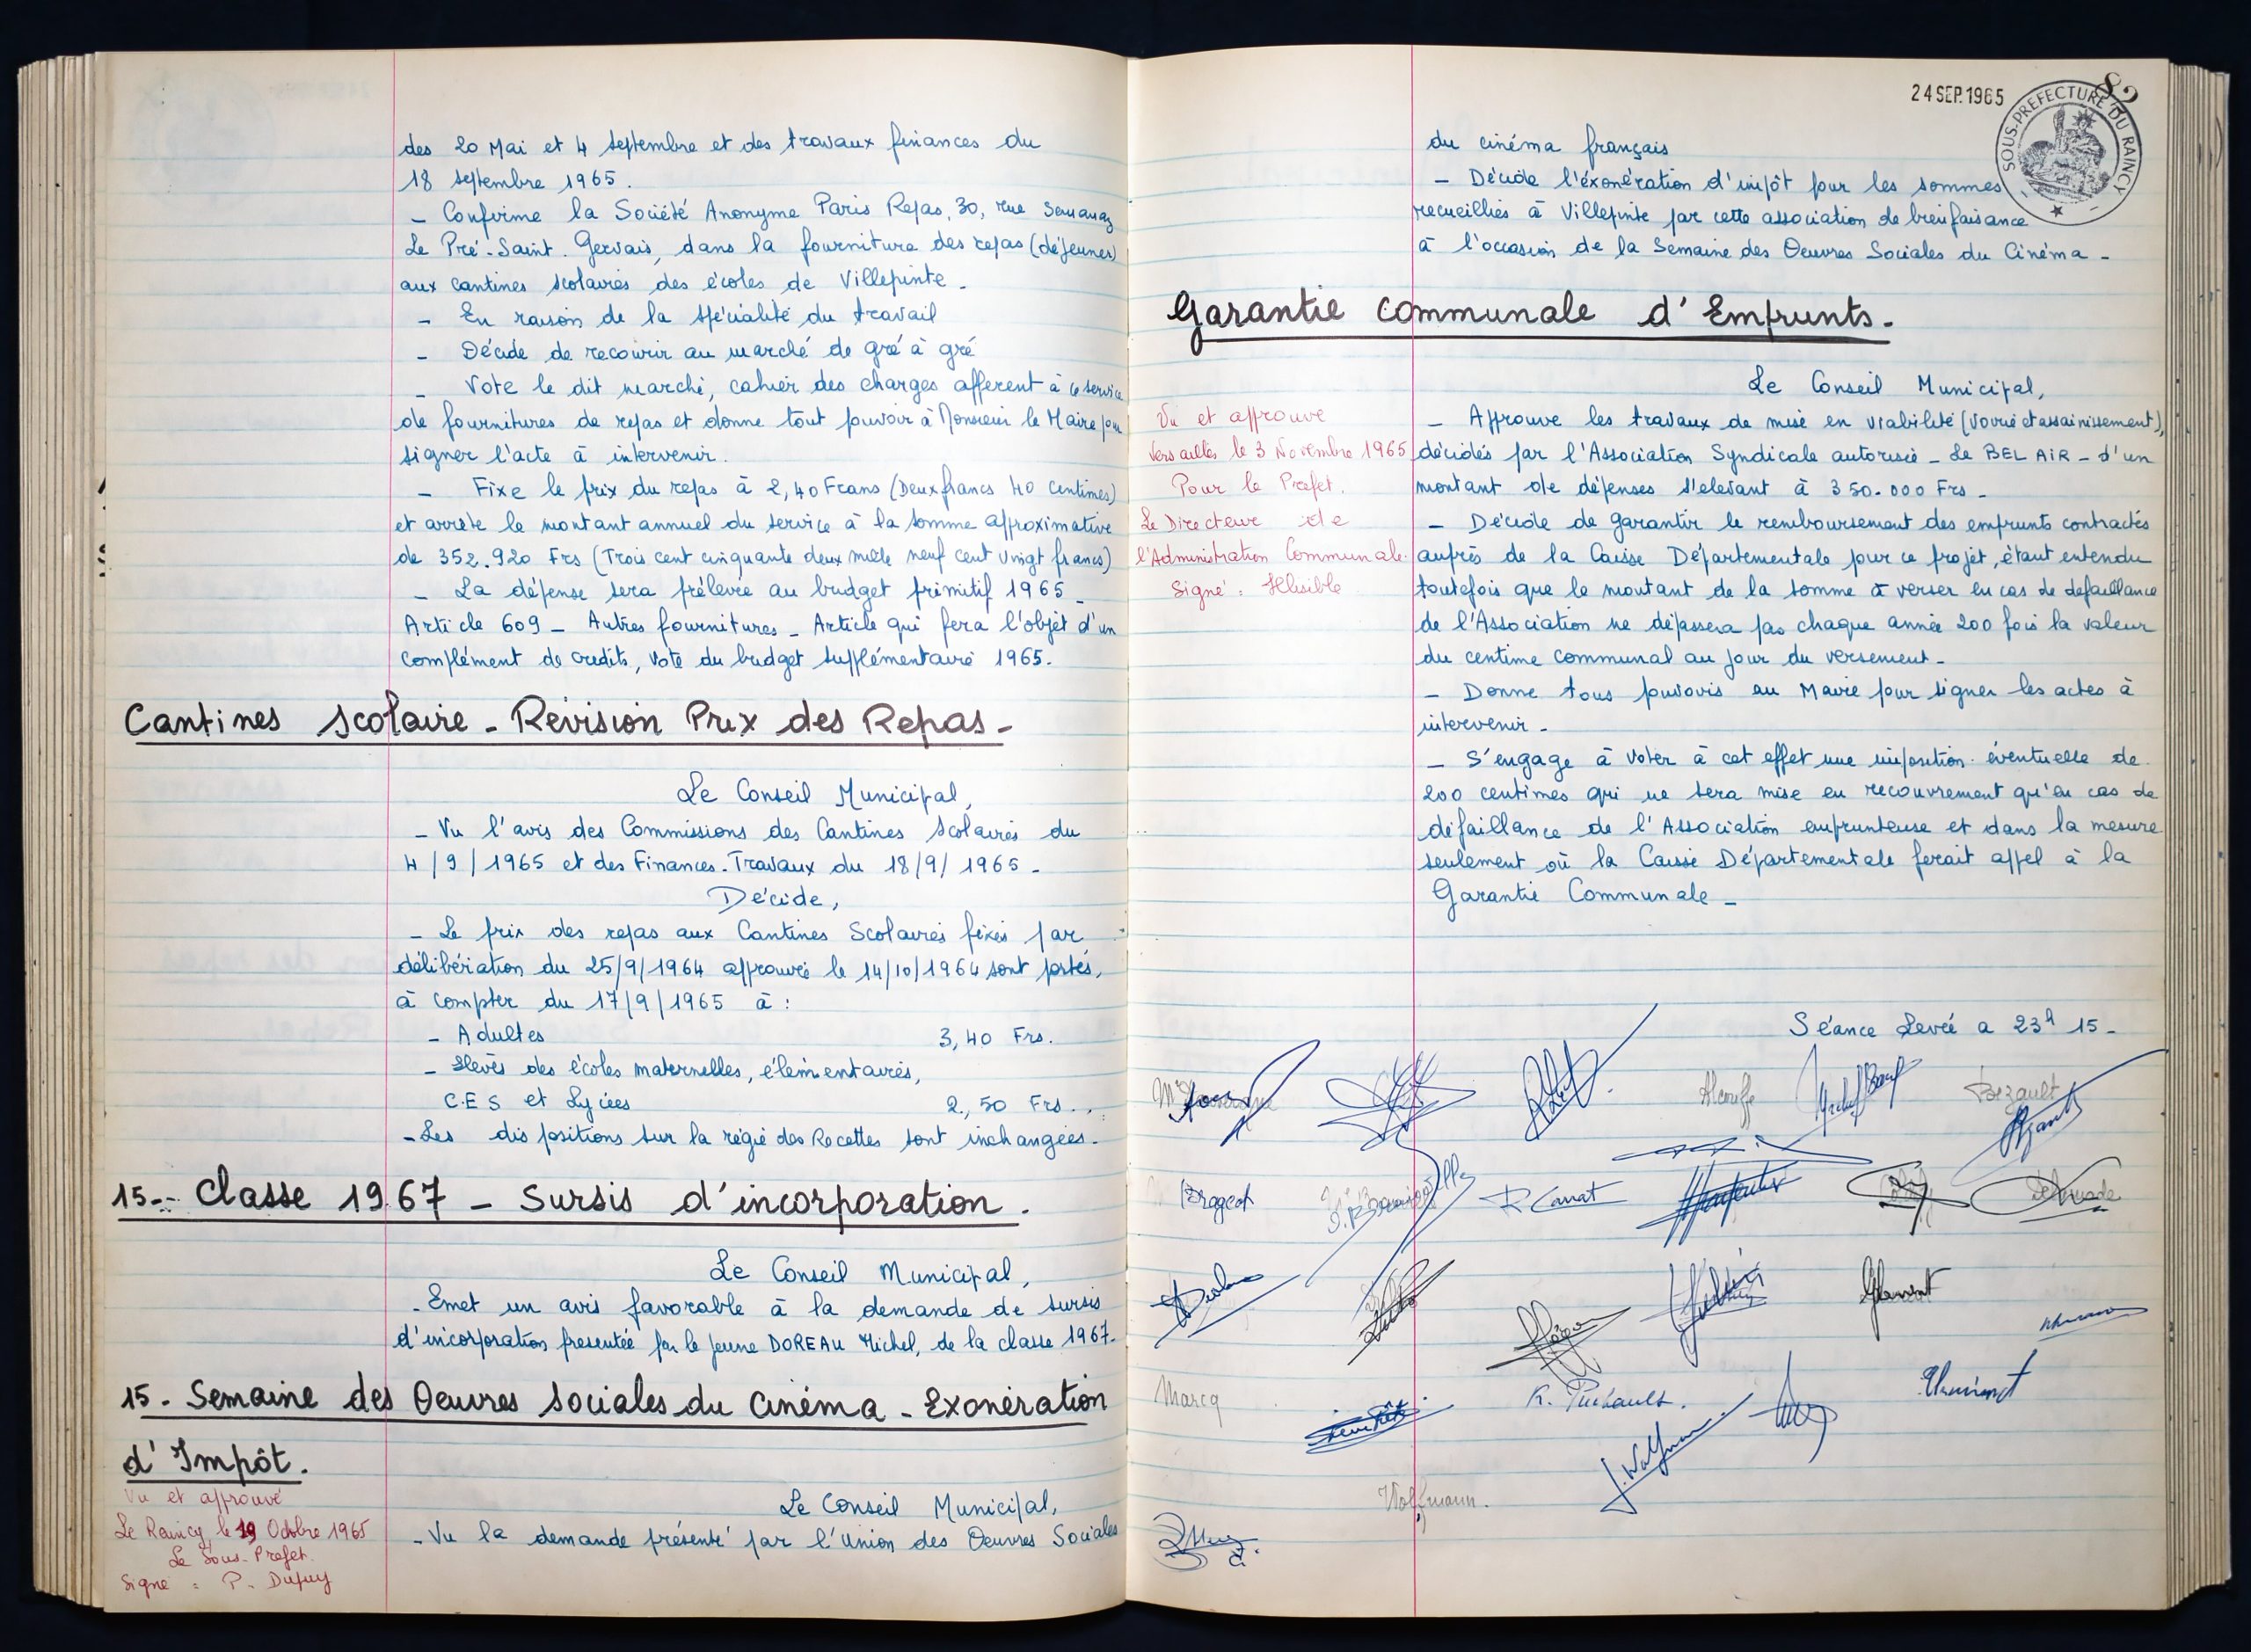 des 20 Mai et 4 septembre et des travaux finances du
18 septembre 1965.
_ Confirme la Société Anonyme Paris Repas, 30, rue
Le Pré-Saint. Gervais, dans la fourniture des repas (déjeuner)
aux cantines scolaires des écoles de Villepinte _
_ En raison de la spécialité du travail
_ Décide de recourir au marché de gré à gré
_ Vote le dit marché, cahier des charges afferent à ce service
de fournitures de repas et donne tout pouvoir à Monsieur le Maire pour
signer l'acte à intervenir.
_ Fixe le prix du repas à 2,40 Francs (Deux francs 40 centimes)
et arrête le montant annuel du service à la somme approximative
de 352.920 Frs (Trois cent cinquante deux mille neuf cent vingt francs)
_ La dépense sera prélevée au budget primitif 1965_
Article 609 _ Autres fournitures _ Article qui fera l'objet d'un
complément de crédits, vote du budget supplémentaire 1965.
Cantines scolaire - Revision Prix des Repas -
Le Conseil Municipal,
- Vu l'avis des Commissions des Cantines scolaires du
4/9/1965 et des Finances-Travaux du 18/9/1965 -
Décide,
- Le prix des repas aux Cantines Scolaires fixés par
délibération du 25/9/1964 approuvée le 14/10/1964 sont portés,
à compter du 17/9/1965 à :
- Adultes 3,40 Frs.
- Elèves des écoles maternelles, élémentaires,
C.E.S et Lycées 2,50 Frs.
- Les dispositions sur la régie des Recettes sont inchangées -
15.- Classe 1967 - Sursis d'incorporation.
Le Conseil Municipal,
- Emet un avis favorable à la demande de sursis
d'incorporation presentée par le jeune DOREAU Michel, de la classe 1967-
15. Semaine des Oeuvres sociales du cinéma - Exonération
d'Impôt.
Vu et approuvé
Le Raincy le 19 Octobre 1965
Le Sous-Prefet.
Signé : P. Dupuy
Le Conseil Municipal,
- Vu la demande présenté par l'Union des Oeuvres Sociales
24 SEP. 1965
82
SOUS-PREFECTURE DU RAINCY
du cinéma français
- Décide l'exonération d'impôt pour les sommes
recueillies à Villepinte par cette association de bienfaisance
à l'occasion de la Semaine des Oeuvres Sociales du Cinéma -
Garantie Communale d'Emprunts.
Le Conseil Municipal,
- Approuve les travaux de mise en viabilité (voirie et assainissement),
décidés par l'Association Syndicale autorisée - Le BEL AIR - d'un
montant de dépenses s'elevant à 350.000 Frs -
- Décide de garantir le remboursement des emprunts contractés
auprès de la Caisse Départementale pour ce projet, étant entendu
toutefois que le montant de la somme à verser en cas de defaillance
de l'Association ne dépassera pas chaque année 200 fois la valeur
du centime communal au jour du versement -
- Donne tous pouvoirs au Maire pour signer les actes à
intervenir -
- S'engage à voter à cet effet une imposition éventuelle de
200 centimes qui ne sera mise en recouvrement qu'en cas de
défaillance de l'Association emprunteuse et dans la mesure
seulement où la Caisse Départementale ferait appel à la
Garantie Communale -
Vu et approuve
Versailles le 3 Novembre 1965
Pour le Prefet.
Le Directeur de
l'Administration Communale.
Signé : Illisible
Séance Levée a 23h 15 -
Bezault
Brageot
R. Canat
Marcq
J. Wolfmann
Wolfmann.